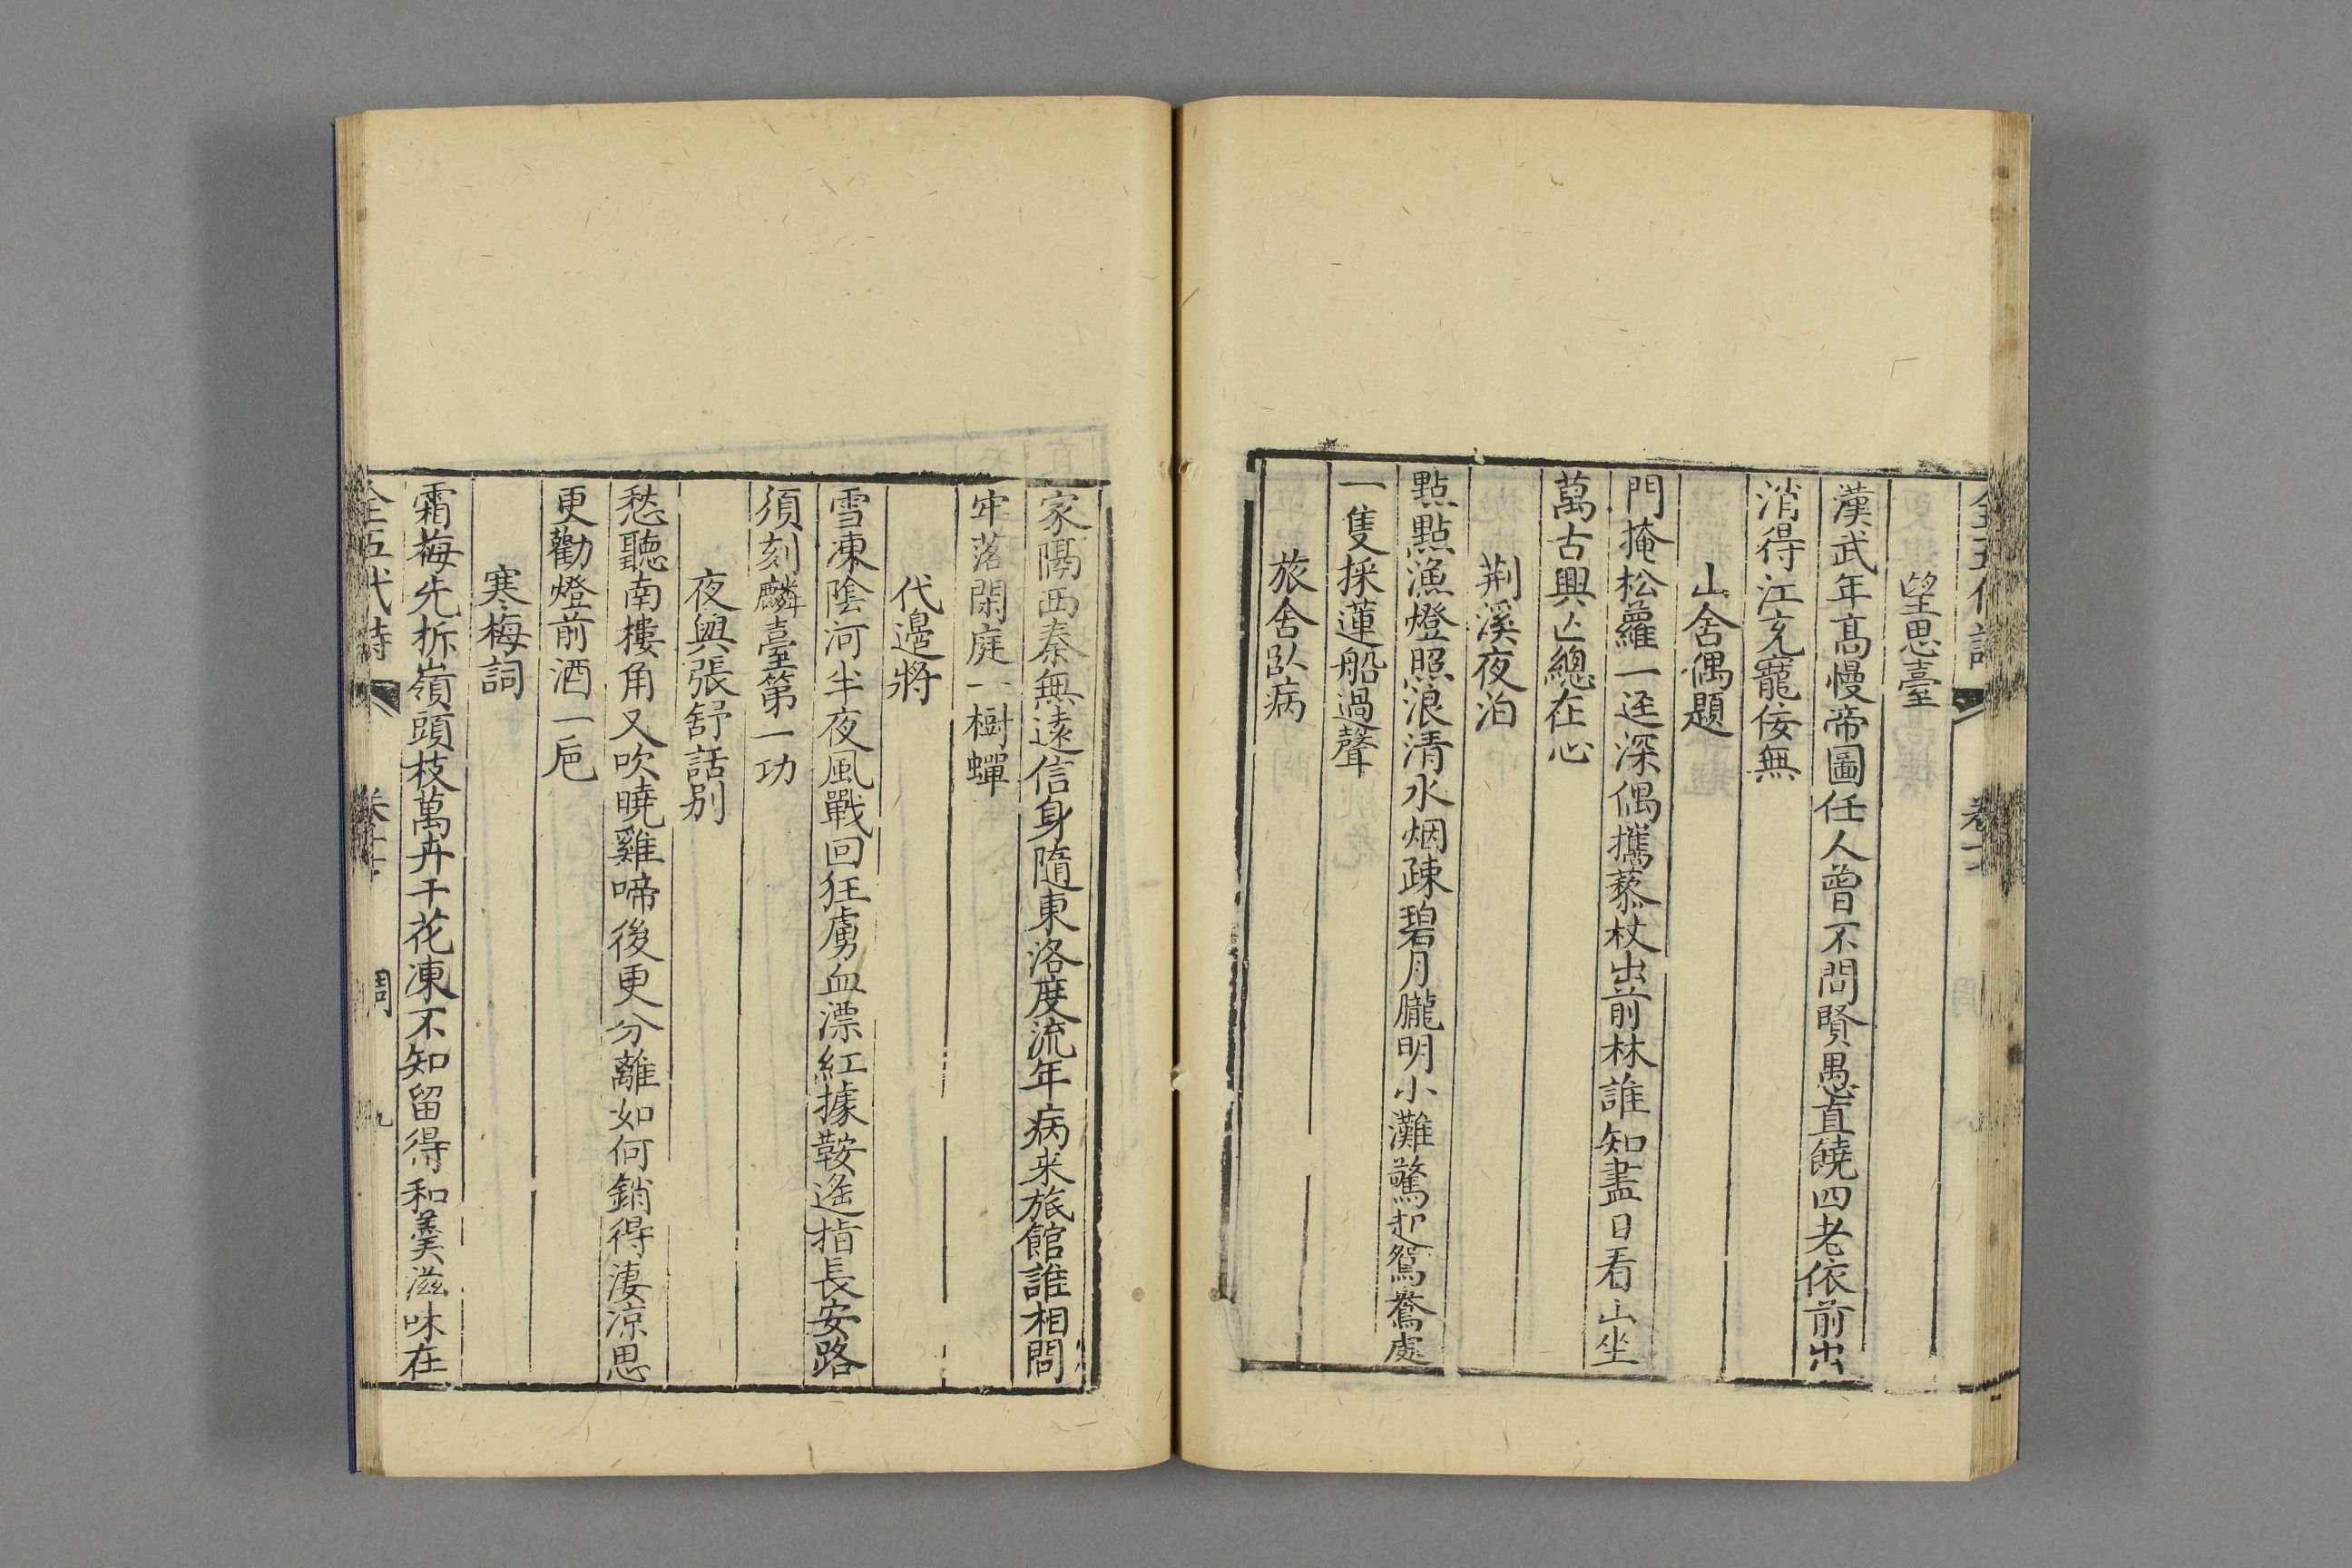 望思臺
漢武年高慢帝圖任人曾不問賢愚直饒四老依前出
消得江充寵佞無
山舍偶題
門掩松蘿一逕深偶攜藜杖出前林誰知盡日看山坐
萬古興亾總在心
荆溪夜泊
點點漁燈照浪清水烟疎碧月朧明小灘驚起鴛鴦處
一隻採蓮船過聲
旅舍臥病
家隔西秦無遠信身隨東洛度流年病来旅館誰相問
牢落閑庭一樹蟬
代邉將
雪凍陰河半夜風戰回狂虜血漂紅據鞍遙指長安路
須刻麟臺第一功
夜與張舒話别
愁聽南樓角又吹曉雞啼後更分離如何銷得淒涼思
更勸燈前酒一巵
寒梅詞
霜梅先拆嶺頭枝萬卉千花凍不知留得和羹滋味在
全五代詩 周